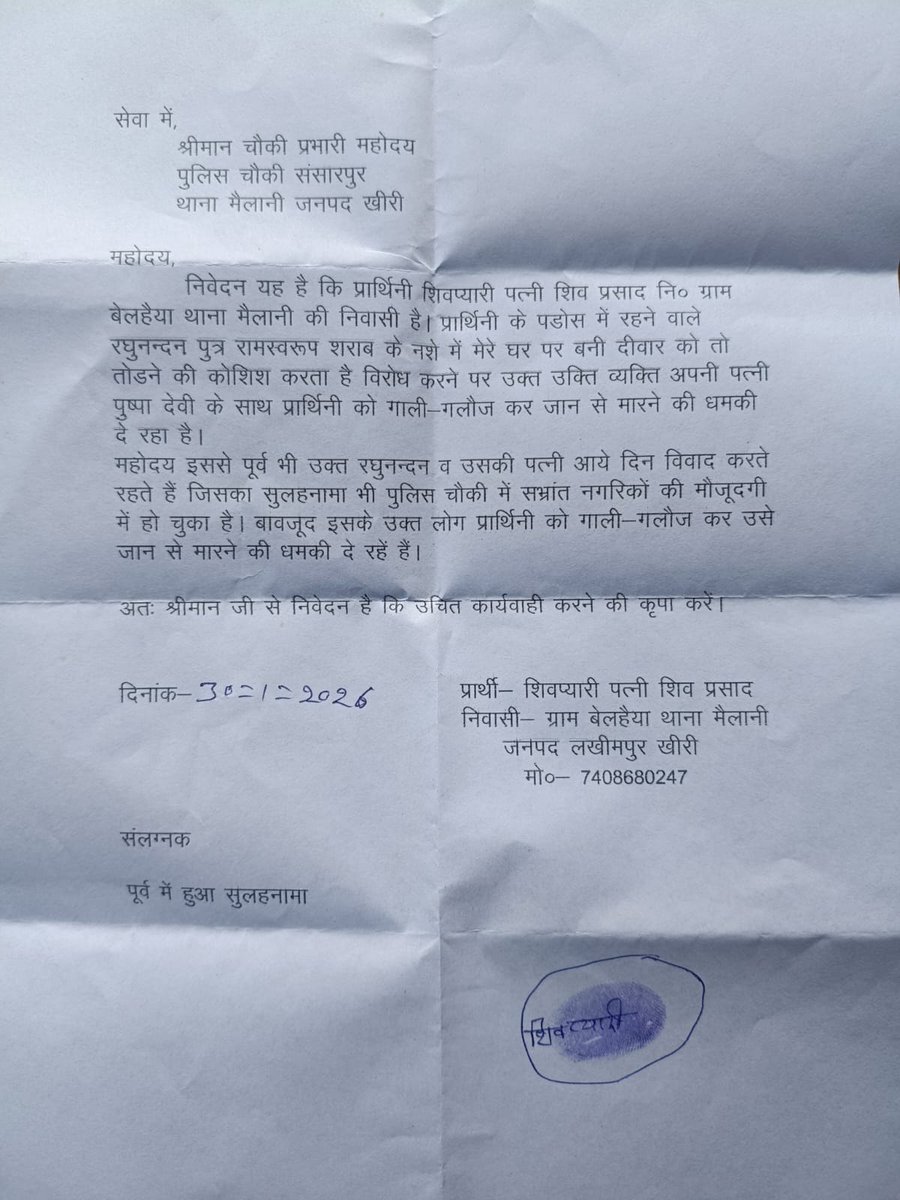 सेवा में,
श्रीमान चौकी प्रभारी महोदय
पुलिस चौकी संसारपुर
थाना मैलानी जनपद खीरी
महोदय,
निवेदन यह है कि प्रार्थिनी शिवप्यारी पत्नी शिव प्रसाद नि० ग्राम
बेलहैया थाना मैलानी की निवासी है। प्रार्थिनी के पडोस में रहने वाले
रघुनन्दन पुत्र रामस्वरूप शराब के नशे में मेरे घर पर बनी दीवार को तो
तोडने की कोशिश करता है विरोध करने पर उक्त उक्ति व्यक्ति अपनी पत्नी
पुष्पा देवी के साथ प्रार्थिनी को गाली–गलौज कर जान से मारने की धमकी
दे रहा है।
महोदय इससे पूर्व भी उक्त रघुनन्दन व उसकी पत्नी आये दिन विवाद करते
रहते हैं जिसका सुलहनामा भी पुलिस चौकी में सभ्रांत नगरिकों की मौजूदगी
में हो चुका है। बावजूद इसके उक्त लोग प्रार्थिनी को गाली–गलौज कर उसे
जान से मारने की धमकी दे रहें हैं।
अतः श्रीमान जी से निवेदन है कि उचित कार्यवाही करने की कृपा करें।
दिनांक– 30=1=2026
प्रार्थी– शिवप्यारी पत्नी शिव प्रसाद
निवासी– ग्राम बेलहैया थाना मैलानी
जनपद लखीमपुर खीरी
मो०– 7408680247
संलग्नक
पूर्व में हुआ सुलहनामा
शिवप्यारी